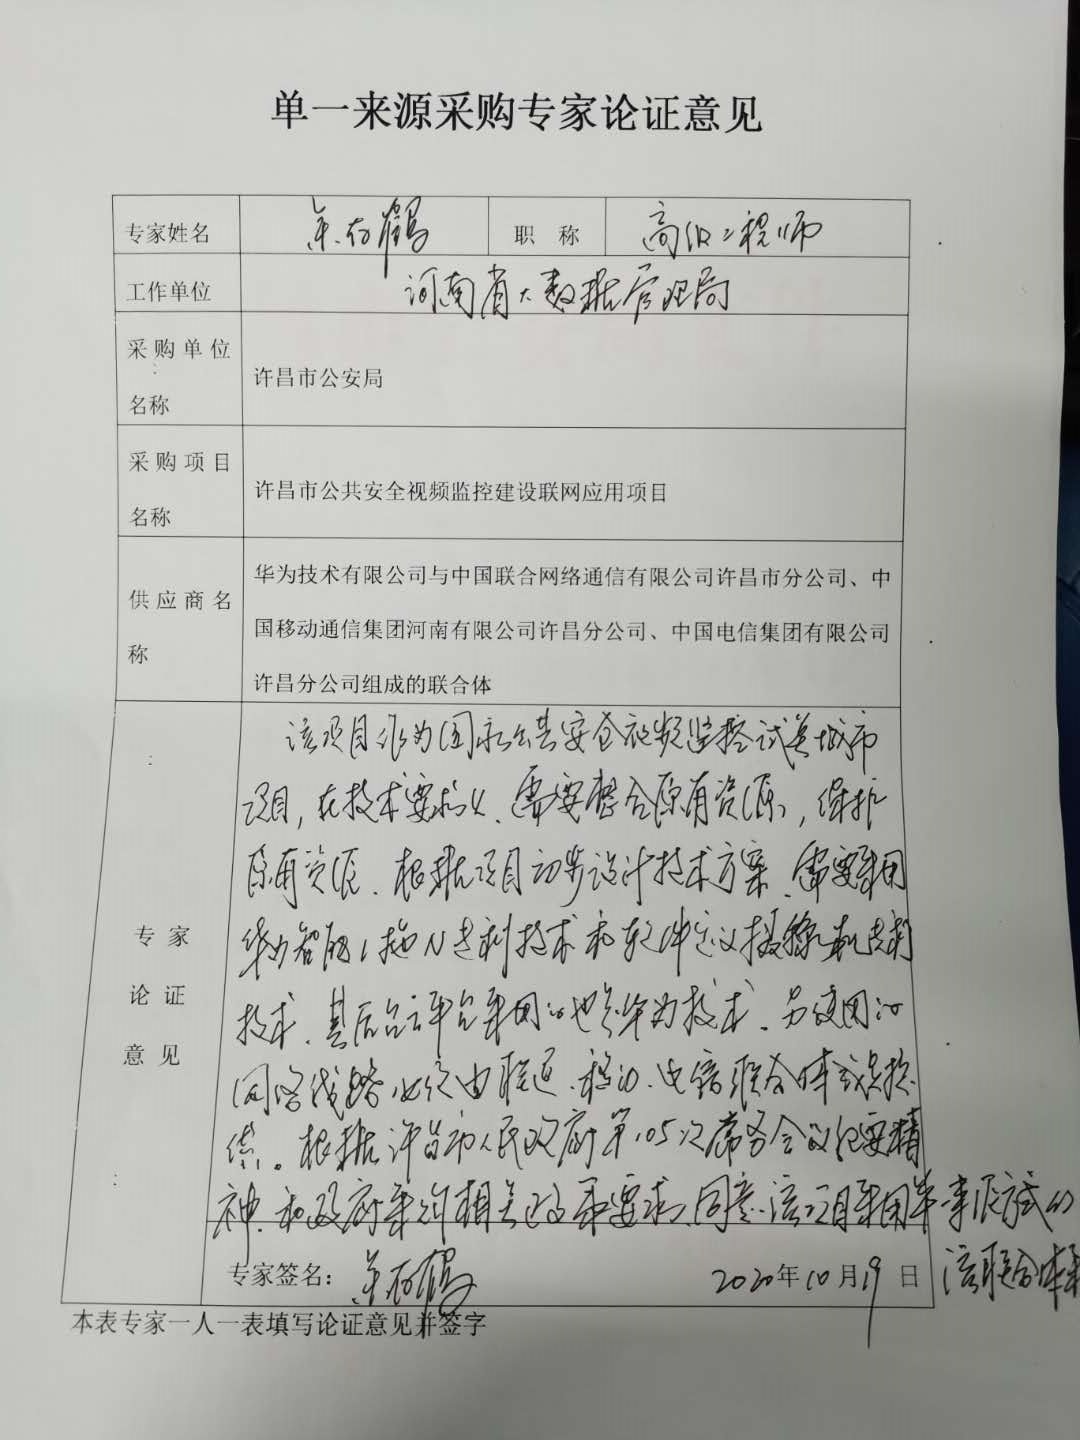 单一来源采购专家论证意见
专家姓名
职 称 高级工程师
工作单位 河南省大数据管理局
采购单位名称 许昌市公安局
采购项目名称 许昌市公共安全视频监控建设联网应用项目
供应商名称
华为技术有限公司与中国联合网络通信有限公司许昌市分公司、中
国移动通信集团河南有限公司许昌分公司、中国电信集团有限公司
许昌分公司组成的联合体
专家论证意见
该项目作为国家公共安全视频监控试点城市
项目,在技术要求上、需要整合原有资源,保护
原有资源、根据项目初步设计技术方案、需要采用
华为智能1拖N专利技术和软件定义摄像机专利
技术、其后台云平台采用的也是华为技术、另使用的
网络线路必须由联通、移动、电信联合体或提
供。根据许昌市人民政府第105次常务会议纪要精
神、和政府采购相关政策要求、同意该项目采用单一来源方式的
该联合体
专家签名:
2020年10月19日
本表专家一人一表填写论证意见并签字